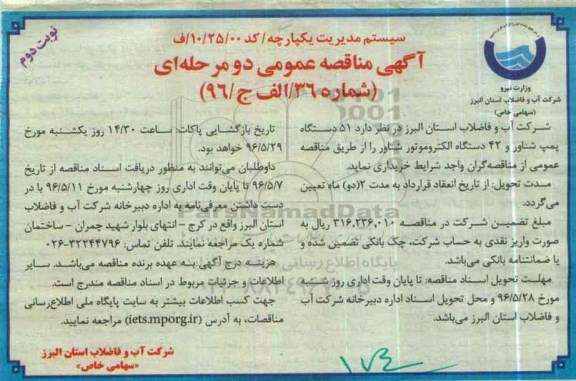 سیستم مدیریت یکپارچه/ کد ۱۰/۲۵/۰۰/ف
نوبت دوم
آگهی مناقصه عمومی دو مرحله‌ای
(شماره ۳۶/الف ج/۹۶)
وزارت نیرو
شرکت آب و فاضلاب استان البرز
(سهامی خاص)
شرکت آب و فاضلاب استان البرز در نظر دارد ۵۱ دستگاه
پمپ شناور و ۴۲ دستگاه الکتروموتور شناور را از طریق مناقصه
عمومی از مناقصه‌گران واجد شرایط خریداری نماید.
مدت تحویل: از تاریخ انعقاد قرارداد به مدت ۲(دو) ماه تعیین
می‌گردد.
مبلغ تضمین شرکت در مناقصه ۳۱۶,۲۳۶,۰۱۰ ریال به
صورت واریز نقدی به حساب شرکت، چک بانکی تضمین شده و
یا ضمانتنامه بانکی می‌باشد.
مهلت تحویل اسناد مناقصه: تا پایان وقت اداری روز شنبه
مورخ ۹۶/۵/۲۸ و محل تحویل اسناد اداره دبیرخانه شرکت آب
و فاضلاب استان البرز می‌باشد.
تاریخ بازگشایی پاکات: ساعت ۱۴/۳۰ روز یکشنبه مورخ
۹۶/۵/۲۹ خواهد بود.
داوطلبان می‌توانند به منظور دریافت اسناد مناقصه از تاریخ
۹۶/۵/۷ تا پایان وقت اداری روز چهارشنبه مورخ ۹۶/۵/۱۱ با در
دست داشتن معرفی‌نامه به اداره دبیرخانه شرکت آب و فاضلاب
استان البرز واقع در کرج – انتهای بلوار شهید چمران – ساختمان
شماره یک مراجعه نمایند. تلفن تماس: ۳۲۲۴۴۷۹۶-۰۲۶
هزینه درج آگهی به عهده برنده مناقصه می‌باشد. سایر
اطلاعات و جزئیات مربوط در اسناد مناقصه مندرج است.
جهت کسب اطلاعات بیشتر به سایت پایگاه ملی اطلاع‌رسانی
مناقصات، به آدرس (iets.mporg.ir) مراجعه نمایید.
شرکت آب و فاضلاب استان البرز
«سهامی خاص»
ParsNamadData